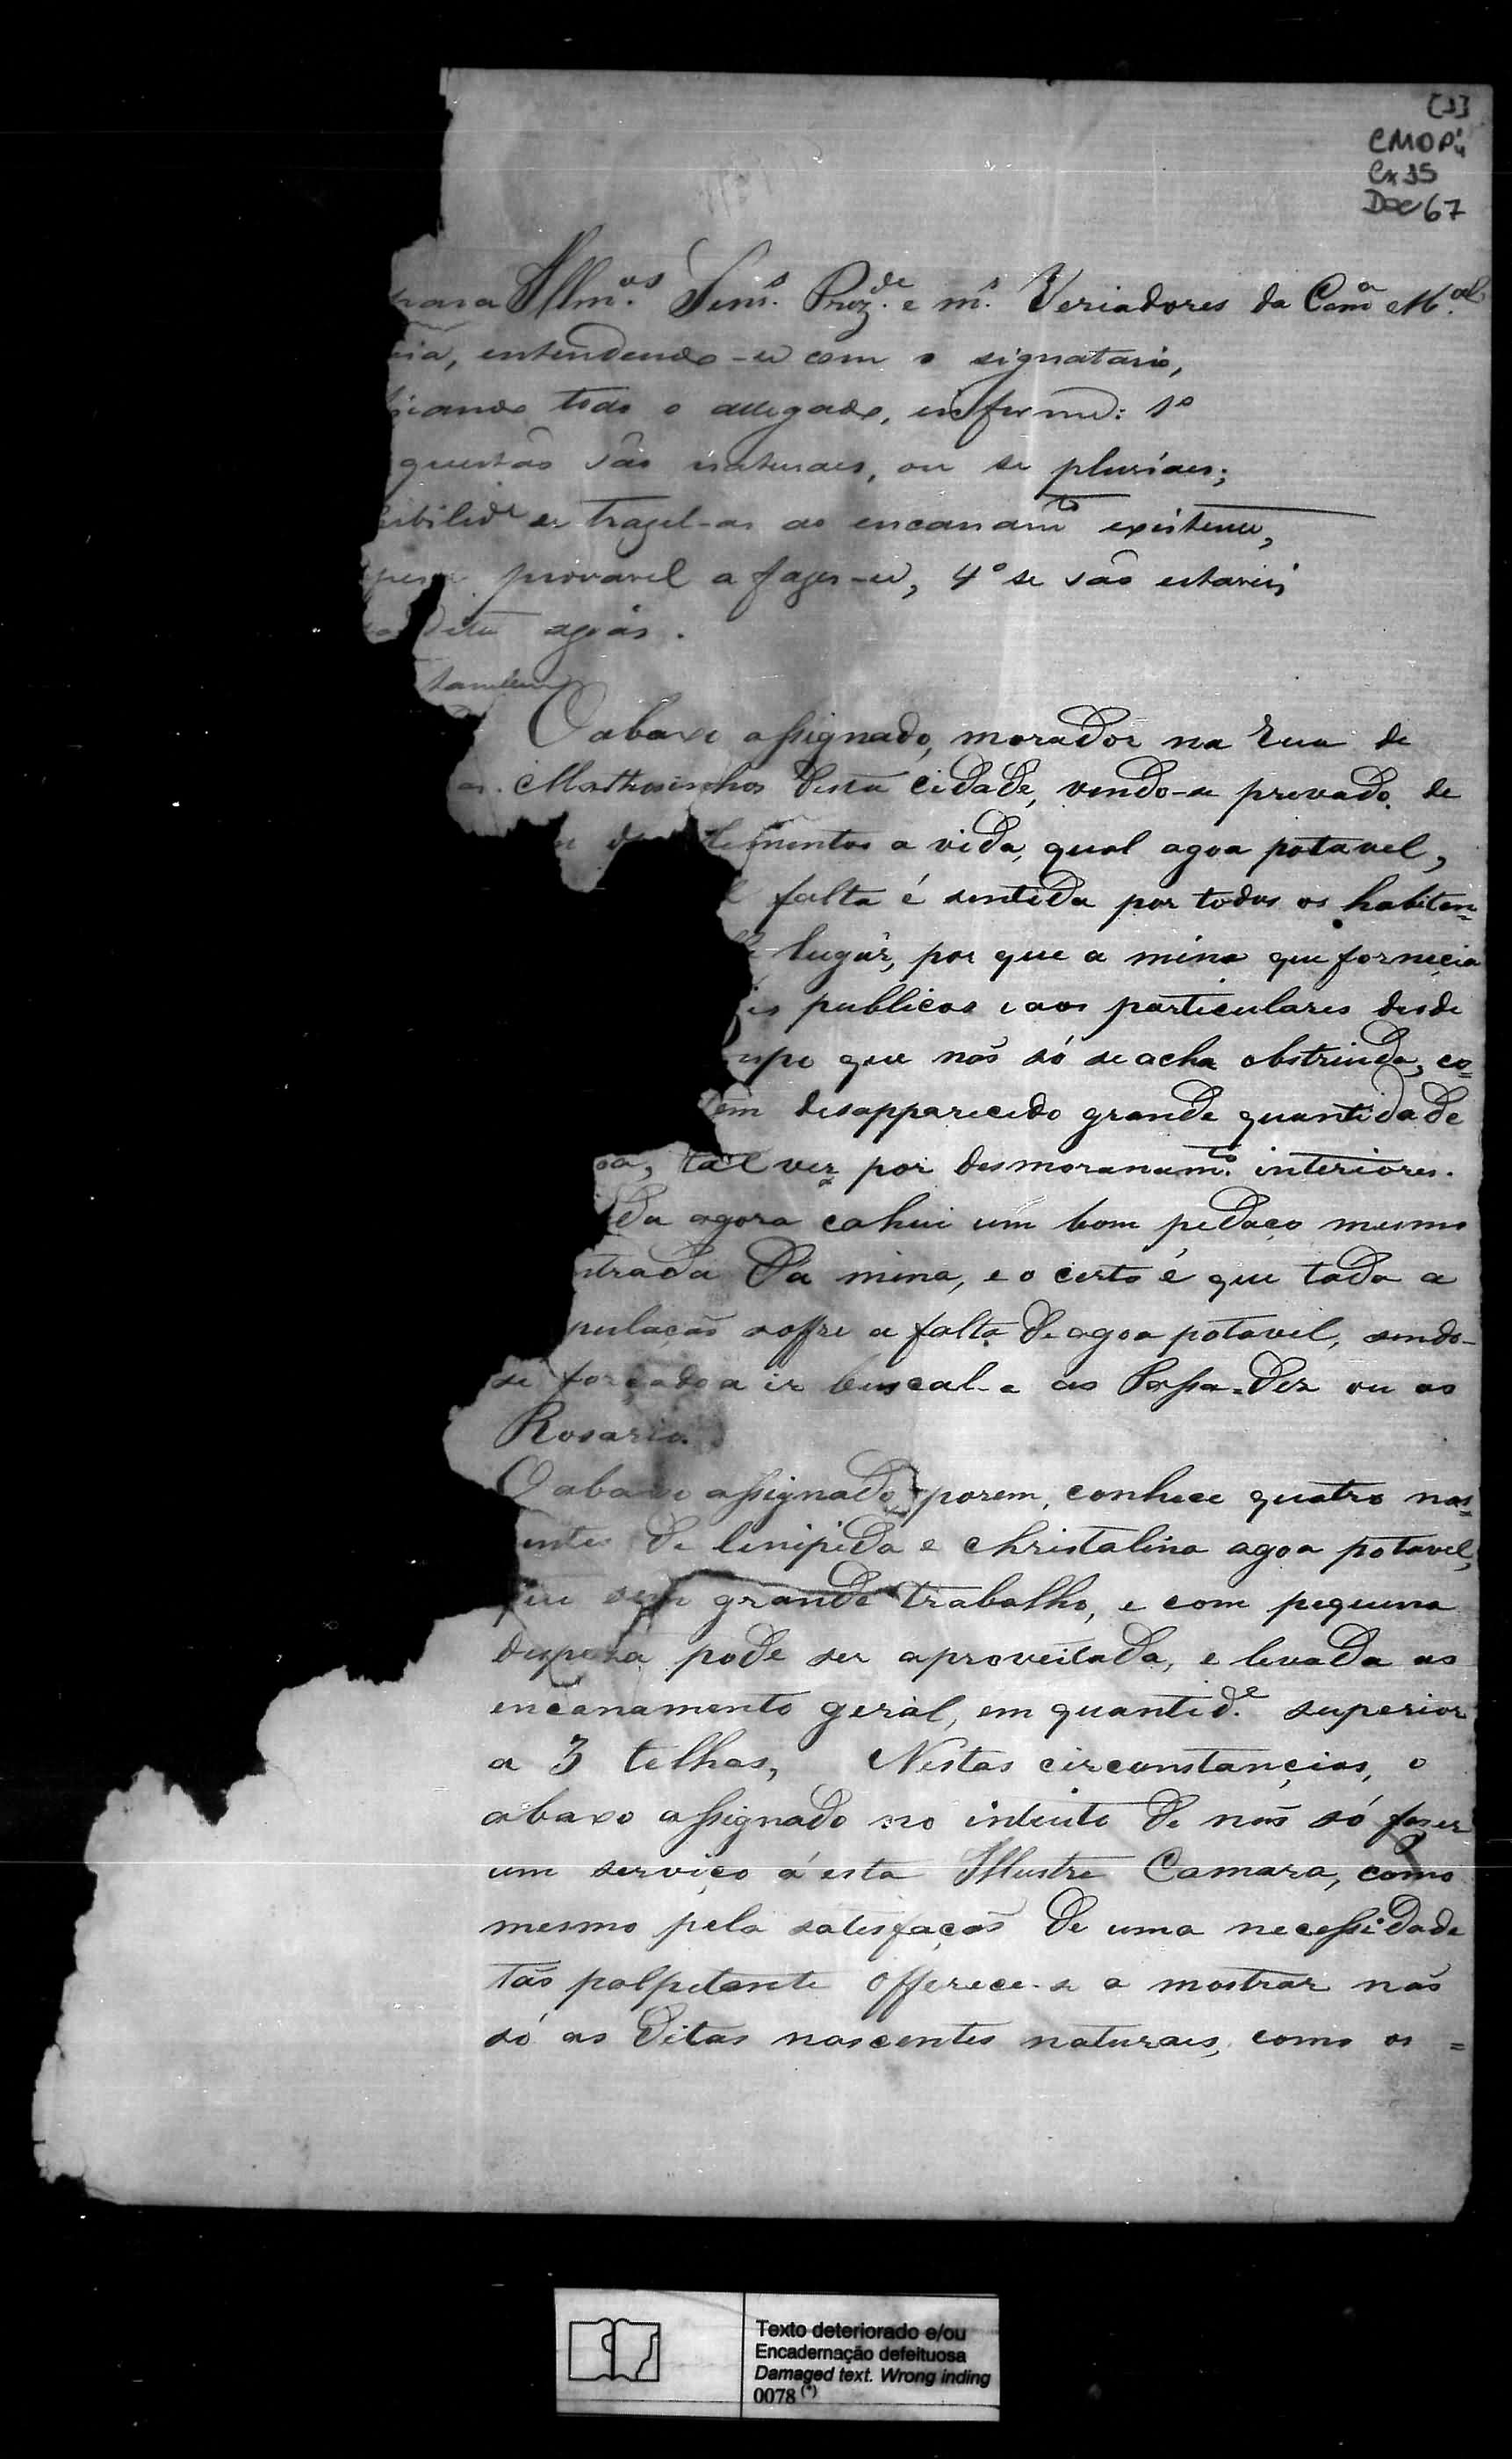 [1]
CMOP
Cx 35
Doc 67
Illm.os Senr.s Prez.de e m.s Veriadores da Camª M.al
entendendo-se com o signatario,
todo o allegado, informe: 1º
questão são naturaes, ou se pluviaes;
trazel-as ao encanamto existente,
provavel a fazer-se, 4º se são estaveis
dita agoas.
tambem
O abaxo assignado, morador na Rua de
Matthosinhos desta Cidade, vendo-se prevado de
a vida, qual agoa potavel,
falta é sentida por todos os habitan=
lugar, por que a mina que fornecia
is publicos e aos particulares desde
que não só se acha obstruida, co=
tem desapparecido grande quantidade
oa, tal vez por desmoronamto. interiores.
da agora cahiu um bom pedaço mesmo
ntrada da mina, e o certo é que toda a
pulação soffre a falta de agoa potavel, sendo-
se forçado a ir buscal-a ao Passa-Dez ou ao
Rosario.
O abaxo assignado, porem, conhece quatro nas=
entes de limpida e christalina agoa potavel,
que sem grande trabalho, e com pequena
despeza pode ser aproveitada, e levada ao
encanamento geral, em quantid.e superior
a 3 telhas, Nestas circunstancias, o
abaxo assignado no intuito de não só fazer
um serviço á esta Illustre Camara, como
mesmo pela satisfação de uma necessidade
tão palpitante offerece-se a mostrar não
só as ditas nascentes naturaes, como os =
Texto deteriorado e/ou
Encadernação defeituosa
Damaged text. Wrong inding
0078 (*)